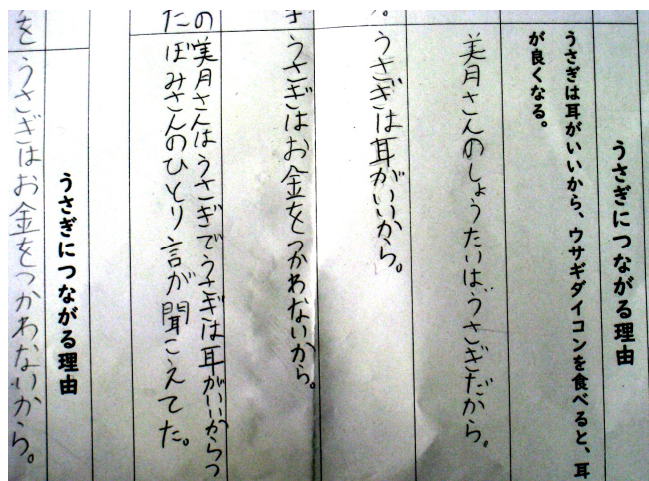 うさぎにつながる理由
うさぎは耳がいいから、ウサギダイコンを食べると、耳
が良くなる。
美月さんのしょうたいは、うさぎだから。
。
うさぎは耳がいいから。
うさぎはお金をつかわないから。
の
た
美月さんはうさぎでうさぎは耳がいいからつ
ぼみさんのひとり言が聞こえてた。
うさぎにつながる理由
を
うさぎはお金をつかわないから。